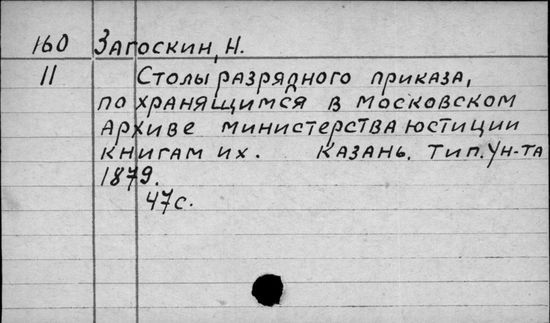 160 Загоскин, Н.
11 Столы разрядного приказа,
по хранящимся в московском
архиве министерства юстиции
книгам их. Казань. Тип. Ун-та
1879.
47с.